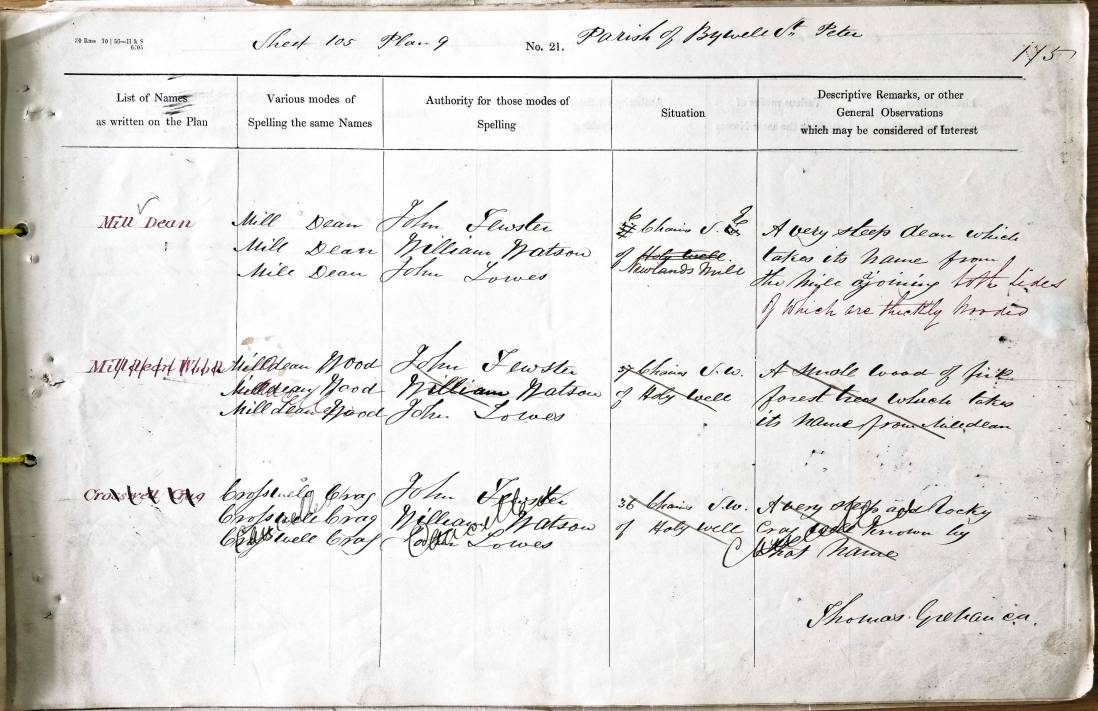 Sheet 105 Plan 9
No. 21.
Parish of Bywell St Peter
175
List of Names
as written on the Plan
Various modes of
Spelling the same Names
Authority for those modes of
Spelling
Situation
Descriptive Remarks, or other
General Observations
which may be considered of Interest
Mill Dean
Mill Dean
Mill Dean
Mill Dean
John Tewster
William Watson
John Lowes
Chains S.
of Holy well.
Newlands Mill
A very steep dean which
takes its name from
the Mill adjoining both sides
of which are thickly wooded
Mill Dean Wood
Milldean Wood
Milldean Wood
Mill dean Wood
John Tewster
William Watson
John Lowes
37 Chains S.W.
of Holy well
A small wood of fir &
forest trees which takes
its name from Milldean
Crosswell Crag
Crosswell Crag
Crosswell Crag
Crosswell Crag
John Tewster
William Watson
John Lowes
Cancelled
36 Chains S.W.
of Holy well
A very steep and Rocky
Crag well known by
that name
Cancelled
Thomas